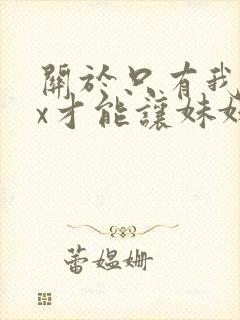 關於只有我
x才能讓妹妹
蕾媪姗